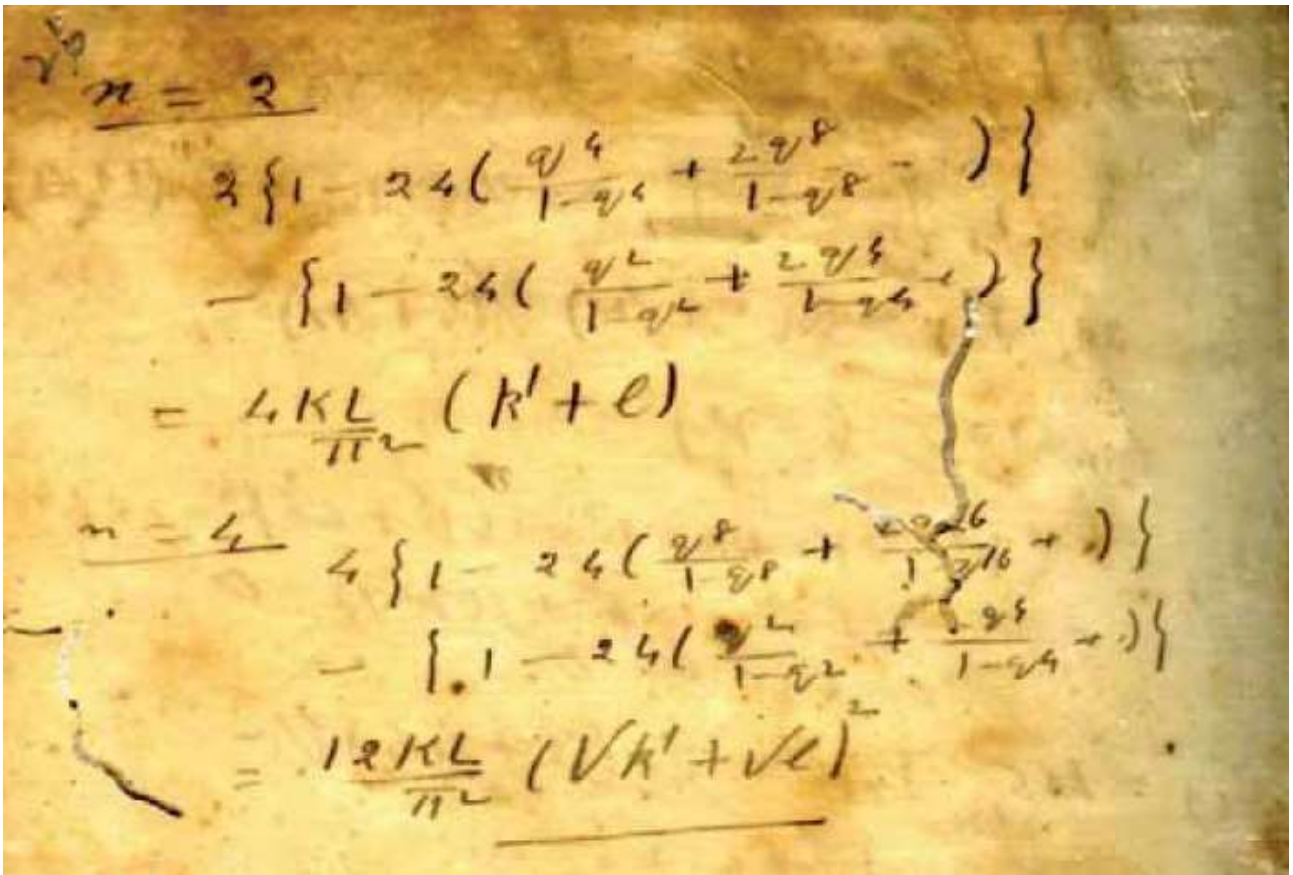 n = 2
2{1 - 24(q^4/(1-q^4) + 2q^8/(1-q^8) - )}
- {1 - 24(q^2/(1-q^2) + 2q^4/(1-q^4) + )}
= 4KL/π^2 (k' + l)
n = 4
4{1 - 24(q^8/(1-q^8) + 2q^16/(1-q^16) + .)}
- {1 - 24(q^2/(1-q^2) + 2q^4/(1-q^4) + .)}
= 12KL/π^2 (√k' + √l)^2